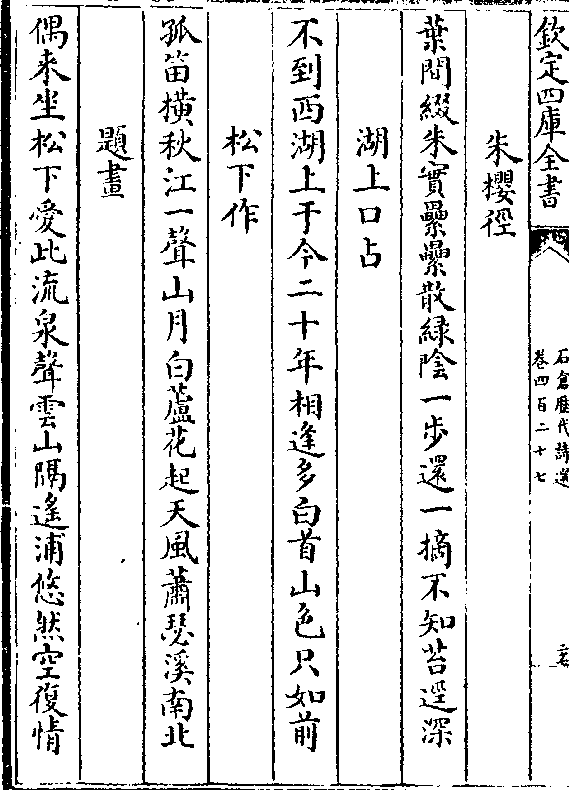 欽定四庫全書
石倉歷代詩選
卷四百二十七
朱櫻徑
葉間綴朱實纍纍散緑陰一步還一摘不知苔逕深
湖上口占
不到西湖上于今二十年相逢多白首山色只如前
松下作
孤笛横秋江一聲山月白蘆花起天風蕭瑟溪南北
題畫
偶来坐松下愛此流泉聲雲山隔遙浦悠然空復情